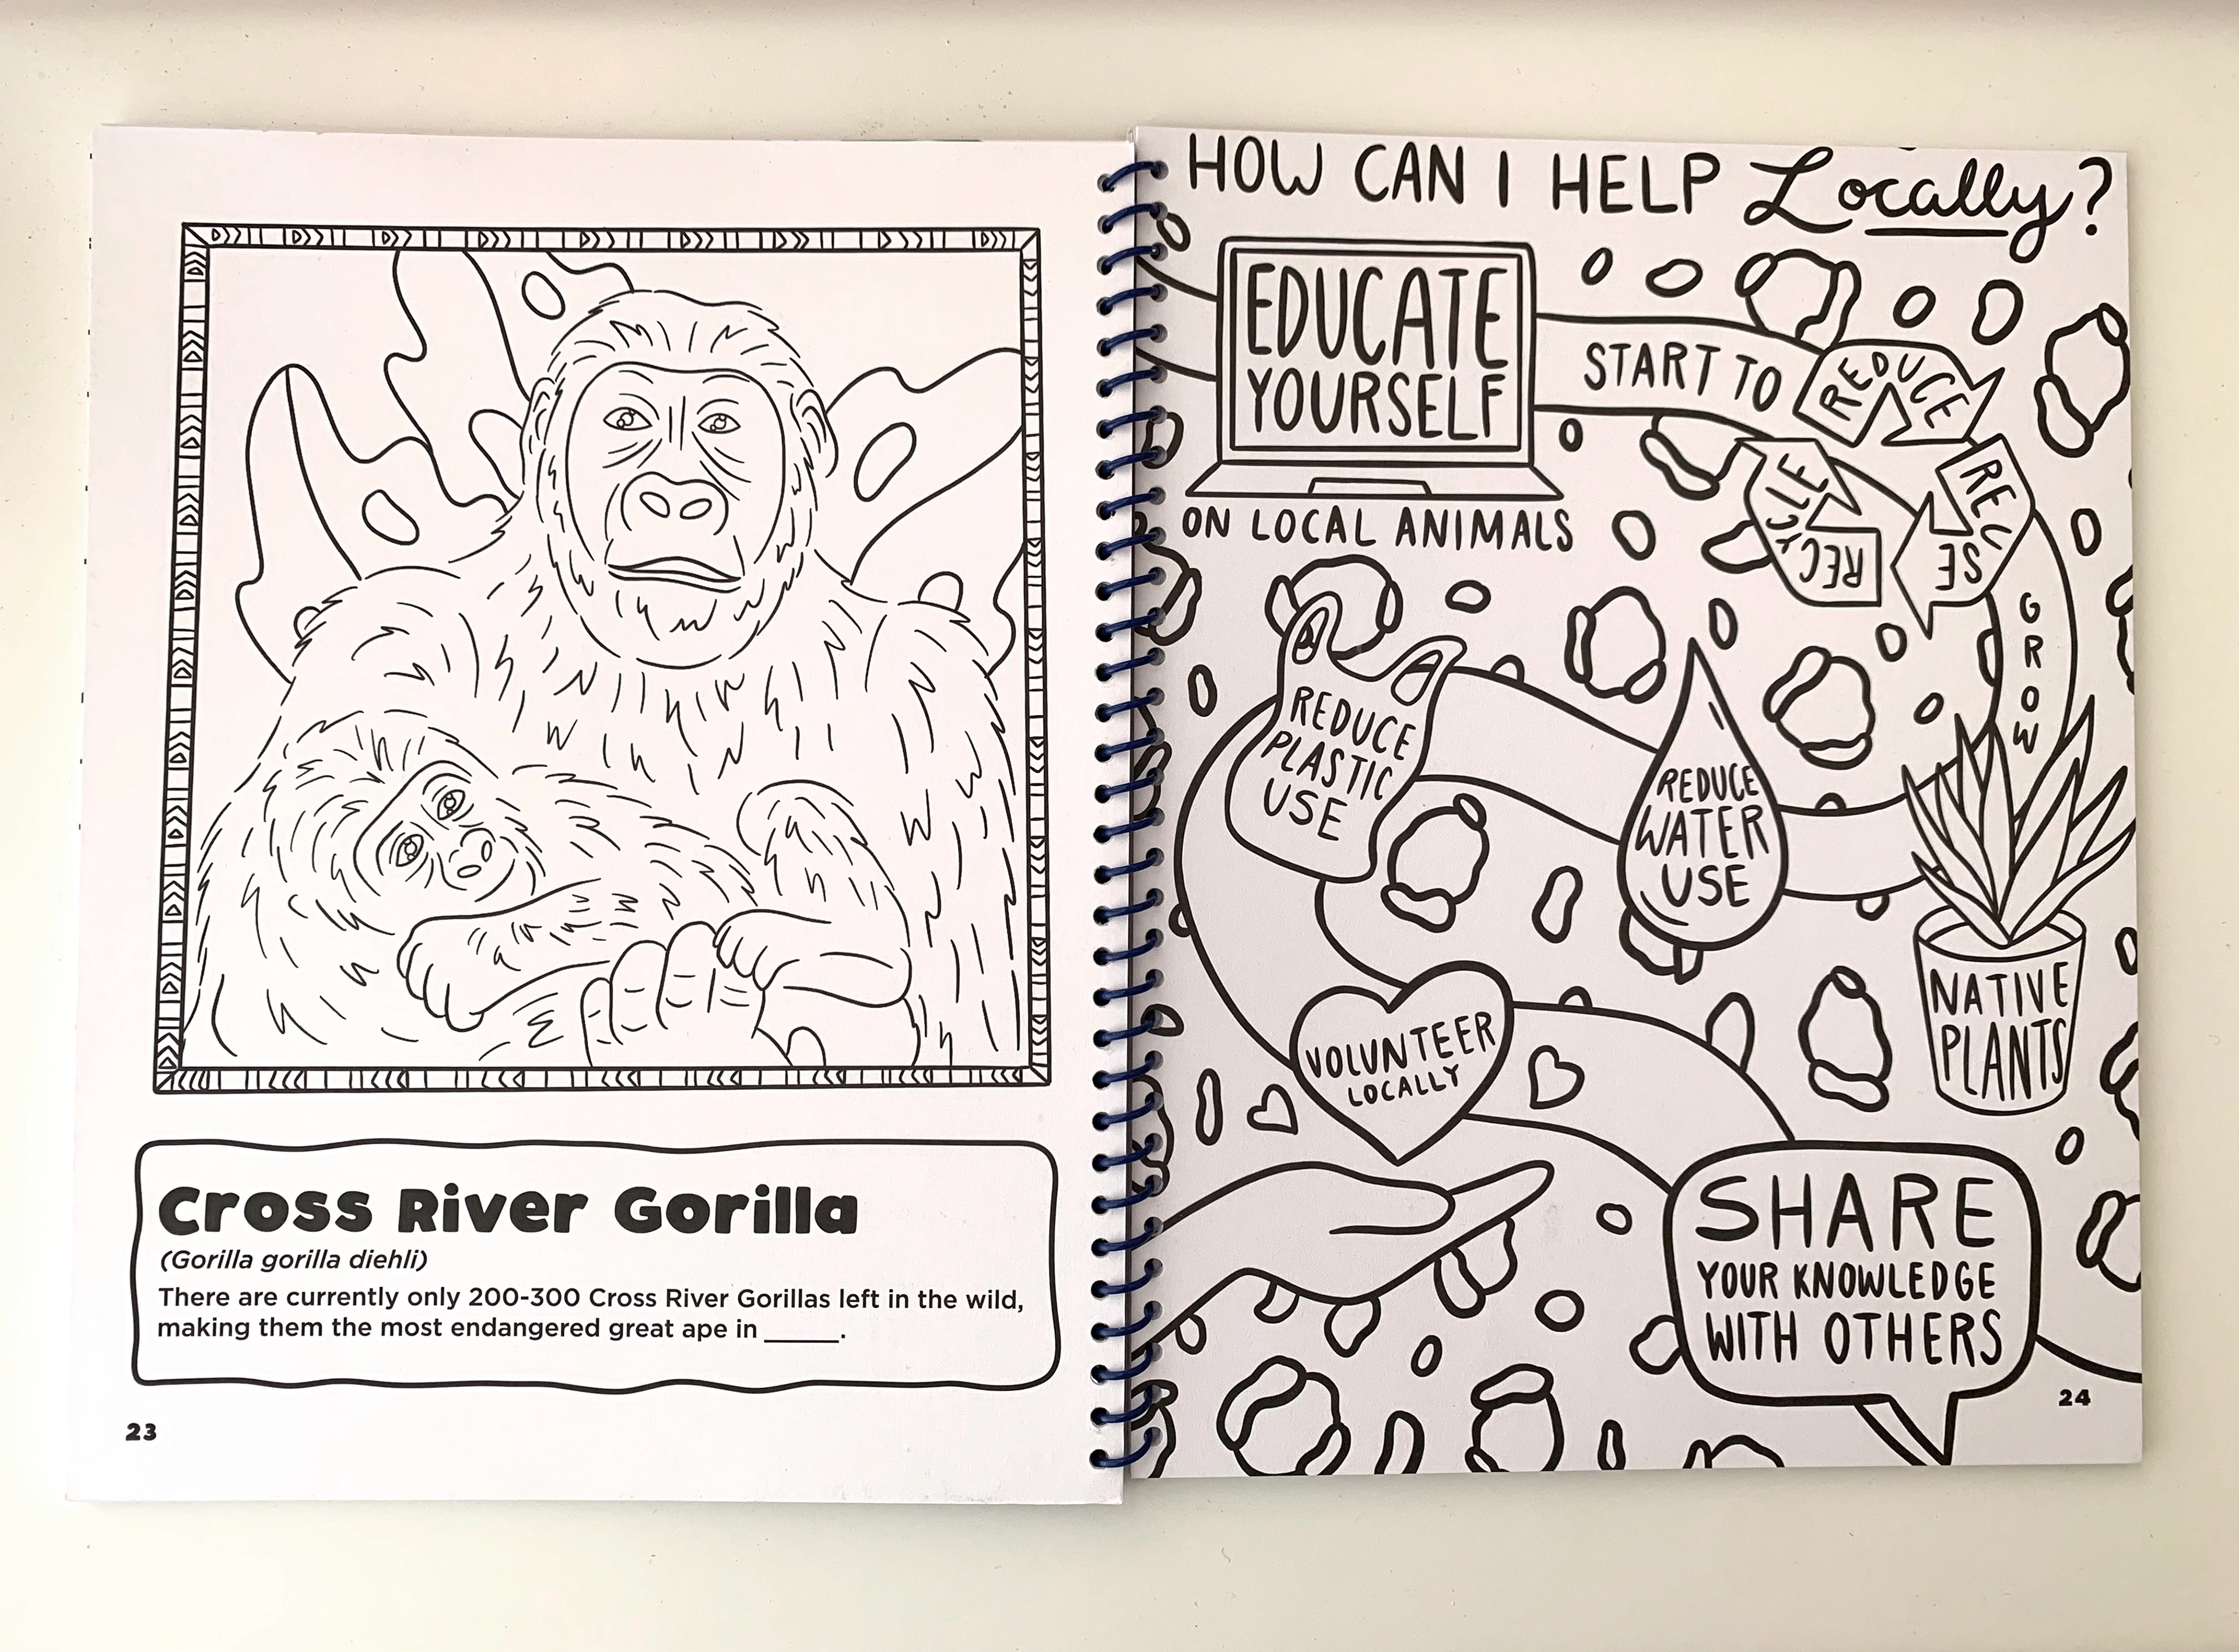 Cross River Gorilla
(Gorilla gorilla diehli)
There are currently only 200-300 Cross River Gorillas left in the wild,
making them the most endangered great ape in ______.
23
HOW CAN I HELP Locally?
EDUCATE
YOURSELF
ON LOCAL ANIMALS
START TO
REDUCE
REUSE
RECYCLE
GROW
NATIVE
PLANTS
REDUCE
WATER
USE
REDUCE
PLASTIC
USE
VOLUNTEER
LOCALLY
SHARE
YOUR KNOWLEDGE
WITH OTHERS
24